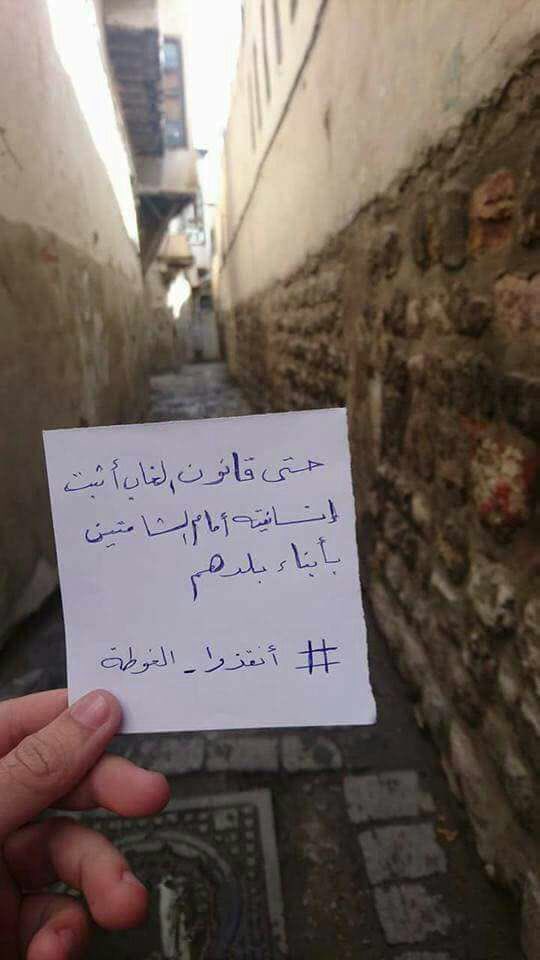 حتى قانون الغاب أثبت
إنسانيته أمام الشامتين
بأبناء بلدهم
# أنقذوا_الغوطة